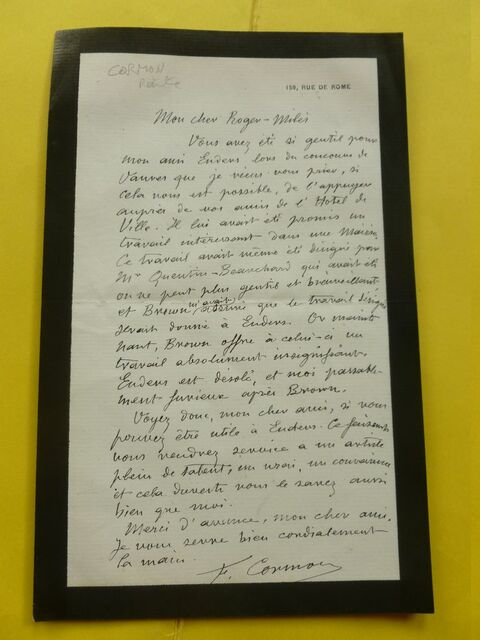 CORMON
159, RUE DE ROME
Mon cher Roger-Milès
Vous avez été si gentil pour
mon ami Enders lors du concours de
Vanves que je viens vous prier, si
cela vous est possible, de l'appuyer
auprès de vos amis de l'Hotel de
Ville. Il lui avait été promis un
travail intéressant dans une Mairie,
Ce travail avait même été désigné par
Mr Quentin-Beauchard qui avait été
on ne peut plus gentil et bienveillant,
et Brown m'avait affirmé que le travail désigné
serait donné à Enders. Or mainte
nant, Brown offre à celui-ci un
travail absolument insignifiant.
Enders est désolé, et moi passable-
ment furieux après Brown.
Voyez donc, mon cher ami, si vous
pouvez être utile à Enders. Ce faisant
vous rendrez service a un artiste
plein de talent, un vrai, un convaincu
et cela vous le savez aussi
bien que moi.
Merci d'avance, mon cher ami,
Je vous serre bien cordialement
la main.
F. Cormon